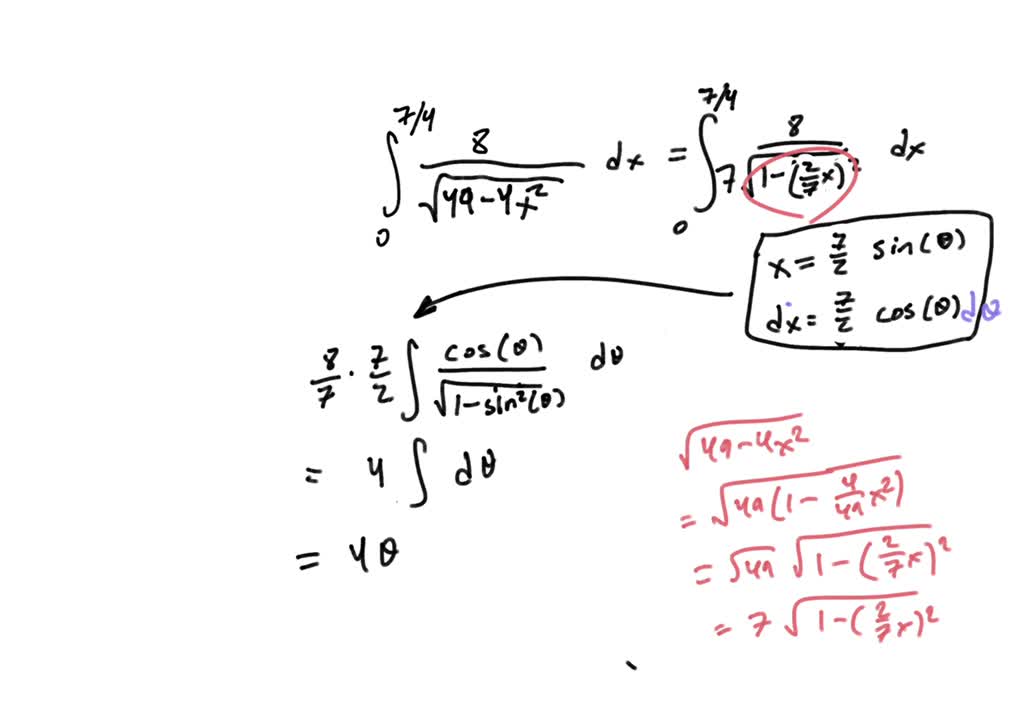 ∫₀^{7/4} 8/√(49-4x²) dx = ∫₀^{7/4} 8/(7√(1-(2/7 x)²)) dx
x = 7/2 sin(θ)
dx = 7/2 cos(θ) dθ
8/7 · 7/2 ∫ cos(θ)/√(1-sin²(θ)) dθ
= 4 ∫ dθ
= 4θ
√(49-4x²)
= √(49(1- 4/49 x²))
= √49 √(1-(2/7 x)²)
= 7 √(1-(2/7 x)²)